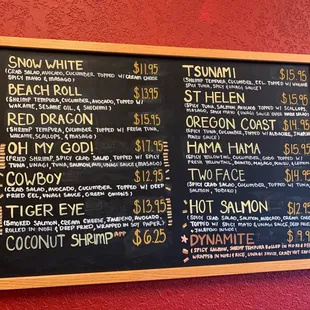 SNOW WHITE $11.95
(CRAB SALAD, AVOCADO, CUCUMBER TOPPED W/ CREAM CHEESE
SPICY MAYO & MASAGO)
BEACH ROLL $13.95
(SHRIMP TEMPURA, CUCUMBER, AVOCADO, TOPPED W/
WAKAME, SESAME OIL, & SRIRACHA)
RED DRAGON $15.95
(SHRIMP TEMPURA, CUCUMBER TOPPED W/ FRESH TUNA,
WAKAME, SCALLOPS, & MASAGO)
OH MY GOD! $17.95
(FRIED SHRIMP, SPICY CRAB SALAD TOPPED W/ SPICY
TUNA, SALMON, TUNA, AVOCADO, UNAGI SAUCE
COWBOY $12.95
(CRAB SALAD, AVOCADO, CUCUMBER TOPPED W/ DEEP
FRIED EEL, UNAGI SAUCE, GREEN ONIONS)
TIGER EYE $13.95
(SMOKED SALMON, CREAM CHEESE, JALAPENO, AVOCADO,
ROLLED IN NORI & DEEP FRIED, WRAPPED IN SOY PAPER)
COCONUT SHRIMP APP $6.25
TSUNAMI $15.95
(SHRIMP TEMPURA, CUCUMBER, EEL, TOPPED W/
SPICY TUNA, SPICY & UNAGI SAUCE)
ST HELEN $15.95
(SPICY TUNA, SALMON, AVOCADO TOPPED W/ SCALLOPS,
SPICY MAYO
OREGON COAST $14.95
(SPICY TUNA, CUCUMBER, TOPPED W/ ALBACORE,
HAMA HAMA $15.95
(SPICY YELLOWTAIL, CUCUMBER TOPPED W/
FRESH YELLOWTAIL,
TWO FACE $14.95
(SPICY CRAB SALAD, CUCUMBER TOPPED W/ TUNA &
SALMON,
HOT SALMON $12.95
(SPICY CRAB SALAD, SALMON, AVOCADO, CREAM CHEESE
TOPPED W/ SPICY MAYO & UNAGI SAUCE, DEEP FRIED
JALAPENO INSIDE)
DYNAMITE $9.95
(SPICY SALMON, SHRIMP TEMPURA ROLLED IN
WRAPPED IN NORI & RICE, UNAGI SAUCE,